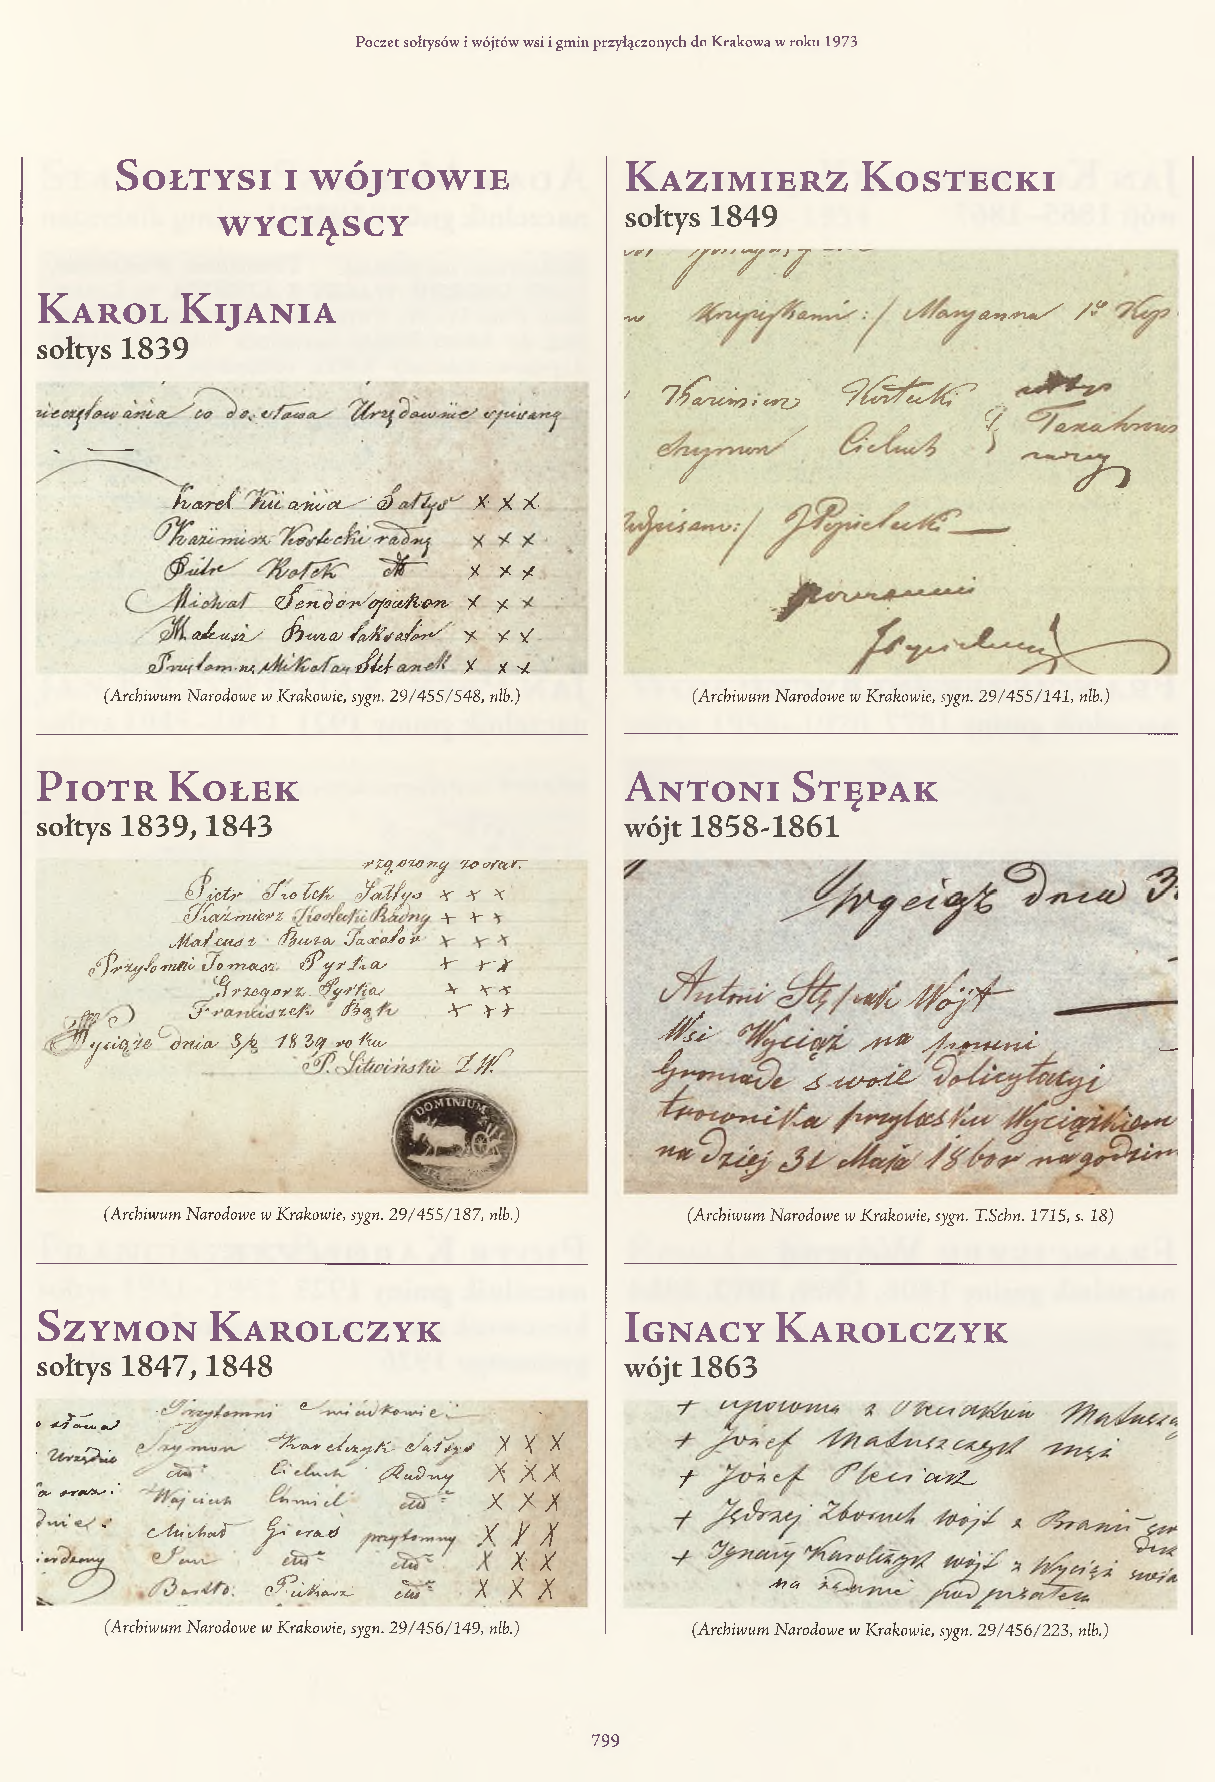 Poczet sołtysów i wójtów wsi i gmin przyłączonych do Krakowa w roku 1973
Sołtysi i wójtowie
wyciąscy
Karol Kijania
sołtys 1839
co do słowa Urzędownie spisaną
Karol Kiiania Sołtys x x x
Kazimirz Kostecki radny x x x
Piotr Kołek dto x x x
Michał Sendor opiekon x x x
Mateusz Bura taksator x x x
Przytomny Mikołay Stefanek x x x
(Archiwum Narodowe w Krakowie, sygn. 29/455/548, nlb.)
Piotr Kołek
sołtys 1839, 1843
rządzony został.
Piotr Kołek Sałtys x x x
Kaźmierz Kostecki Radny x x x
Mateusz Bura Taxator x x x
Przytomni Tomasz Pyrka x x x
Grzegorz Pyrka x x x
Franciszek Bąk x x x
Wyciąże dnia 3/2 1839 roku
P. Litwiński Z.W.
DOMINIUM
(Archiwum Narodowe w Krakowie, sygn. 29/455/187, nlb.)
Szymon Karolczyk
sołtys 1847, 1848
Przytomni Świadkowie:
o słowa
Szymon Karolczyk Sałtys X X X
Urzędnie
dto Cieluch Radny X X X
a oraz:
Woyciech Chmiel dto X X X
dnie:
Michał Gieras przytomny X X X
ierdzony
Pan dto dto X X X
Piekarz dto X X X
(Archiwum Narodowe w Krakowie, sygn. 29/456/149, nlb.)
Kazimierz Kostecki
sołtys 1849
Krzyżykami:/ Maryanna 1º
Kazimierz Kostecki sołtys
Szymon Cieluch
(Archiwum Narodowe w Krakowie, sygn. 29/455/141, nlb.)
Antoni Stępak
wójt 1858-1861
Wyciąż dnia 3
Antoni Stępak Wójt
Wsi Wyciąż na
Gromade swoie dolicytacyi
przylasku Wyciązkiem
na dzień 31 Maja 1860r na godzin
(Archiwum Narodowe w Krakowie, sygn. T.Schn. 1715, s. 18)
Ignacy Karolczyk
wójt 1863
+ z Matuszcz
+ Józef Matuszczyk mąż
+ Józef Pleciarz
+ Jędrzej Zbrouch wójt z Branic
+ Ignacy Karolczyk wójt z Wyciąż
na żądanie
(Archiwum Narodowe w Krakowie, sygn. 29/456/223, nlb.)
799